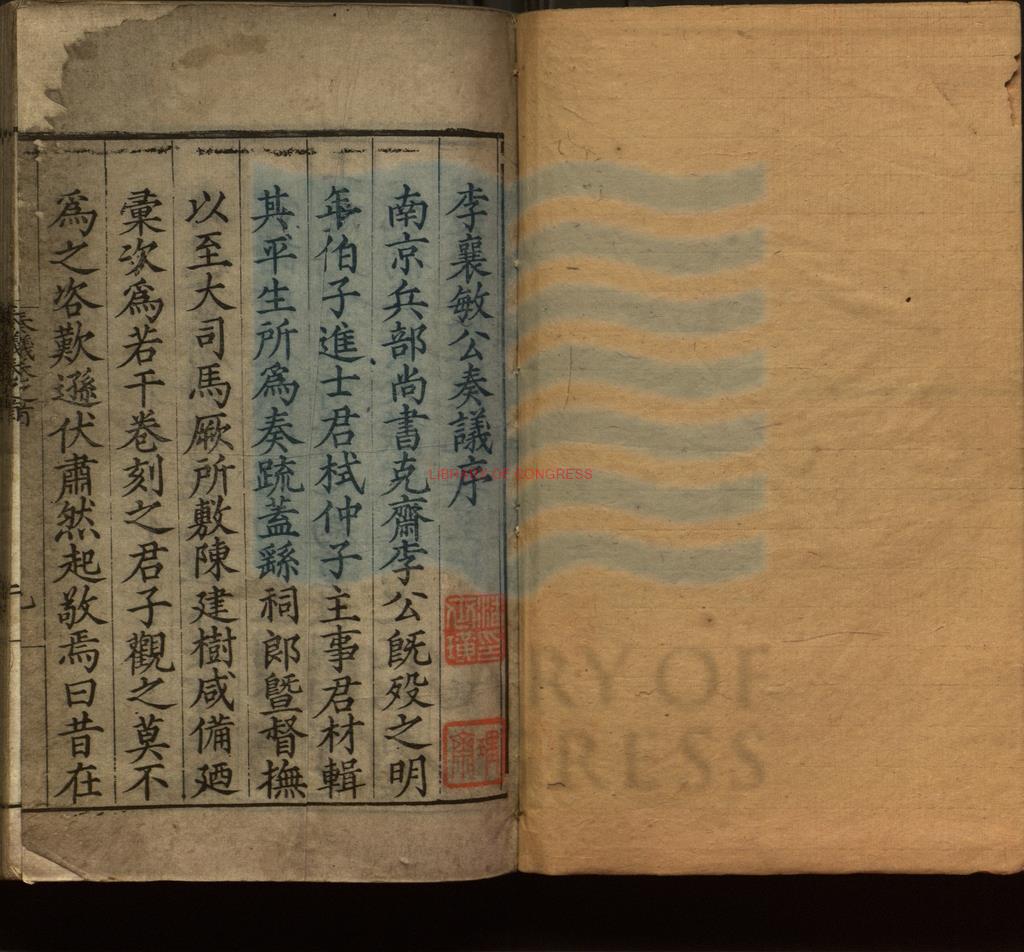 李襄敏公奏議序
南京兵部尚書克齋李公旣歿之明
年伯子進士君栻仲子主事君材輯
其平生所爲奏疏蓋繇祠郎曁督撫
以至大司馬厥所敷陳建樹咸備廼
彙次爲若干卷刻之君子觀之莫不
爲之咨歎遜伏肅然起敬焉曰昔在
LIBRARY OF CONGRESS
RY OF
RESS